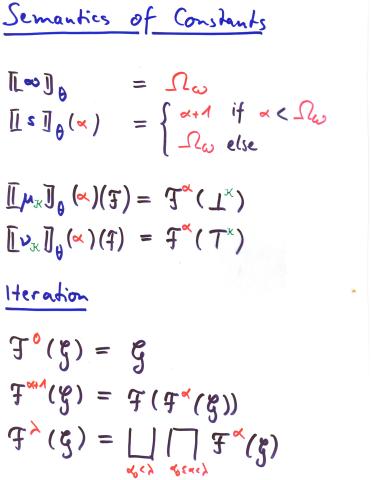 Semantics of Constants
⟦∞⟧_θ = Ω_ω
⟦s⟧_θ(α) = { α+1 if α < Ω_ω
Ω_ω else
⟦μ_κ⟧_θ(α)(F) = F^α(⊥^κ)
⟦ν_κ⟧_θ(α)(F) = F^α(⊤^κ)
Iteration
F^0(G) = G
F^{α+1}(G) = F(F^α(G))
F^λ(G) = ⨆_{α₀<λ} ⨅_{α₀≤α<λ} F^α(G)